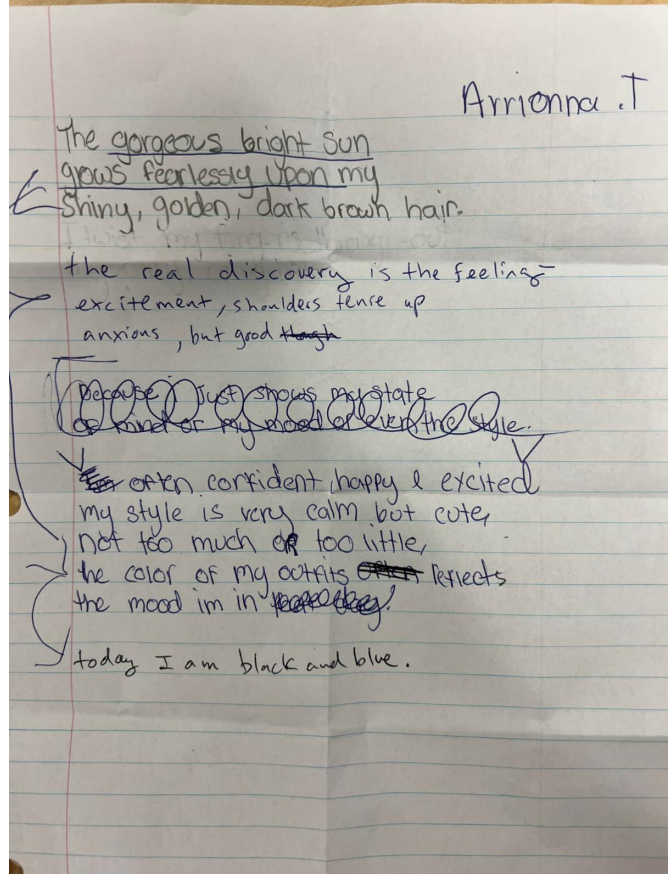 Arrionna .T
The gorgeous bright sun
glows fearlessly upon my
Shiny, golden, dark brown hair.
the real discovery is the feeling-
excitement, shoulders tense up
anxious, but good though
because just shows my state
of mind or my mood or even the style.
often confident, happy & excited
my style is very calm but cute,
not too much or too little,
the color of my outfits often reflects
the mood im in
today I am black and blue.